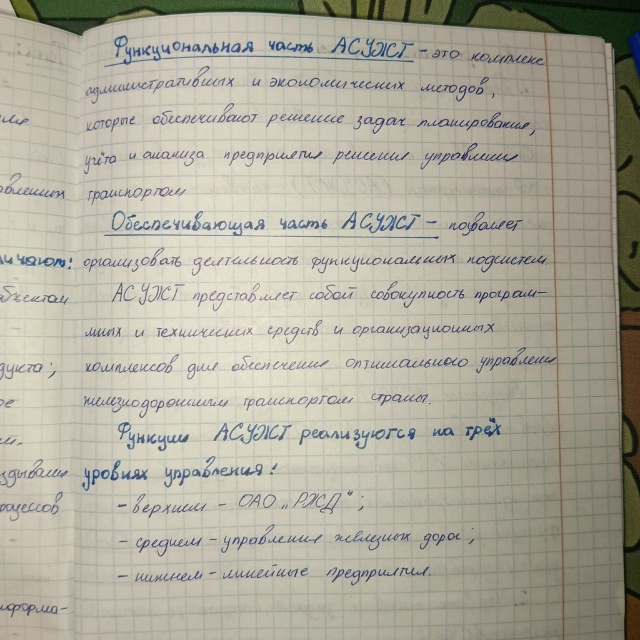 Функциональная часть АСУЖТ - это комплекс
административных и экономических методов,
которые обеспечивают решение задач планирования,
учёта и анализа предприятия решения управления
транспортом
Обеспечивающая часть АСУЖТ - позволяет
организовать деятельность функциональных подсистем
АСУЖТ представляет собой совокупность програм-
мных и технических средств и организационных
комплексов для обеспечения оптимального управления
железнодорожным транспортом страны.
Функции АСУЖТ реализуются на трёх
уровнях управления:
- верхнем - ОАО „РЖД";
- среднем - управления железных дорог;
- нижнем - линейные предприятия.